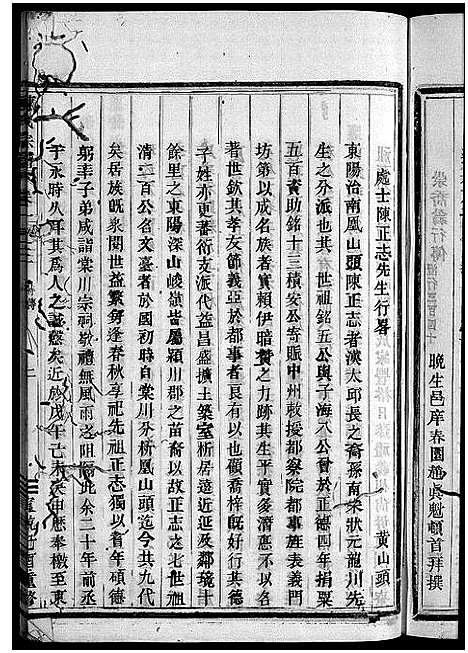 晚生邑庠春園趙貞魁頓首拜撰
處士陳正志先生行畧
黃山頭
東陽治南鳳山頭陳正志者漢太邱長之裔孫南宋狀元龍川先
生之分派也其二世祖銘五公與子海八公會於正德四年捐粟
五百賚助銘十三積安公寄賑中州敕授都察院都事旌表義門
坊第以成名族者實賴伊暗贊之力跡其生平實多潛德不以表
著世欽其孝友節義亞於都事者良有以也顧喬梓好行其德
子姓亦更蕃衍支派代益昌盛擴土築室析居遠近延及鄰境十
餘里之東陽深山峻嶺皆屬潁川郡之苗裔以故正志之七世祖
清二百公名文臺者於國初時自棠川分析鳳山頭迄今共九代
矣居族既永閱世益繁每逢春秋享祀先祖正志獨以省年碩德
躬率子弟咸詣棠川宗祠敬禮無風雨之阻隔此余二十年前丞
于永時久耳其為人之誠愨矣近於戊午己未庚申歷奉檄至東